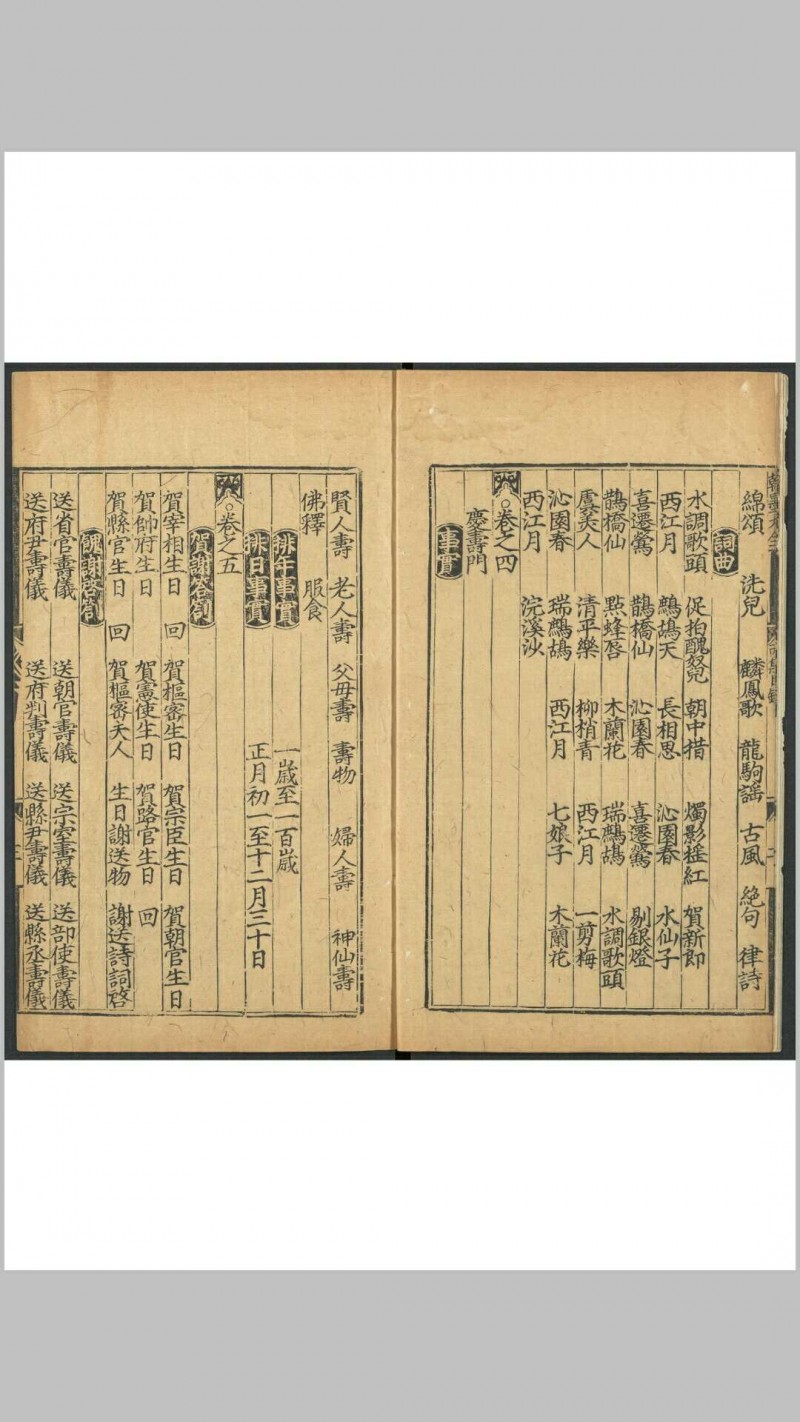 綿頌 洗兒 麟鳳歌 龍駒謡 古風 絶句 律詩
詞曲
水調歌頭 促拍醜奴兒 朝中措 燭影揺紅 賀新郎
西江月 鷓鴣天 長相思 沁園春 水仙子
喜遷鶯 鵲橋仙 沁園春 喜遷鶯 剔銀燈
鵲橋仙 㸃絳唇 木蘭花 瑞鷓鴣 水調歌頭
虞美人 清平樂 柳梢青 西江月 一剪梅
沁園春 瑞鷓鴣 西江月 七娘子 木蘭花
西江月 浣溪沙
○卷之四
慶壽門
事實
賢人壽 老人壽 父母壽 壽物 婦人壽 神仙壽
佛釋 服食
排年事實 一歲至一百歲
排日事實 正月初一至十二月三十日
○卷之五
賀謝啓劄
賀宰相生日 賀樞密生日 賀宗臣生日 賀朝官生日
賀帥府生日 回 賀憲使生日 賀路官生日 回
賀縣官生日 回 賀樞密夫人 生日謝送物 謝送詩詞啓
餽謝啓劄
送省官壽儀 送朝官壽儀 送宗室壽儀 送部使壽儀
送府尹壽儀 送府判壽儀 送縣尹壽儀 送縣丞壽儀